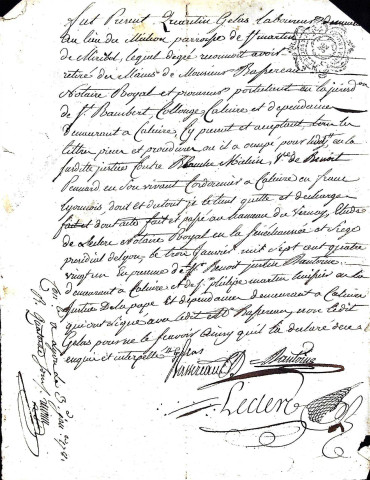 fut Present Quentin Gelas Laboureur demeurant
au lieu du Molion parroisse de St martin
de Miribel, lequel degré reconnoit avoir
retiré des Mains de Monsieur Basseriau
Notaire Royal et procureur postulant en la jurid.on
de St Rambert Collonge Caluire et dependances
demeurant a Caluire Cy present et acceptant, tous les
lettres pieces et procedures ou il a occupé pour en la
susditte justice Contre Blanche Ve de Benoit
Pennard en son vivant Cordonnier a Caluire en franc
lyonnois dont et du tout je le tiens quitte et decharge
fait et dont acte fait et passé au hameau du Vernay, Etude
de Leclerc Notaire Royal en la Senechaussée et Siege
presidial de lyon, le trois janvier mil sept cent quatre
vingt un en presence de Sr Benoit justin Bautoine
demeurant a Caluire et de Sr philippe martin huissier en la
justice De la pape et dependances demeurant a Caluire
qui ont signé avec ledit Me Basseriau, non ledit
Gelas pour ne le scavoir ainsy qu'il la declaré de ce
enquis et interpellé
Basseriau Bautoine
Leclerc
a Lyon le 3 1781